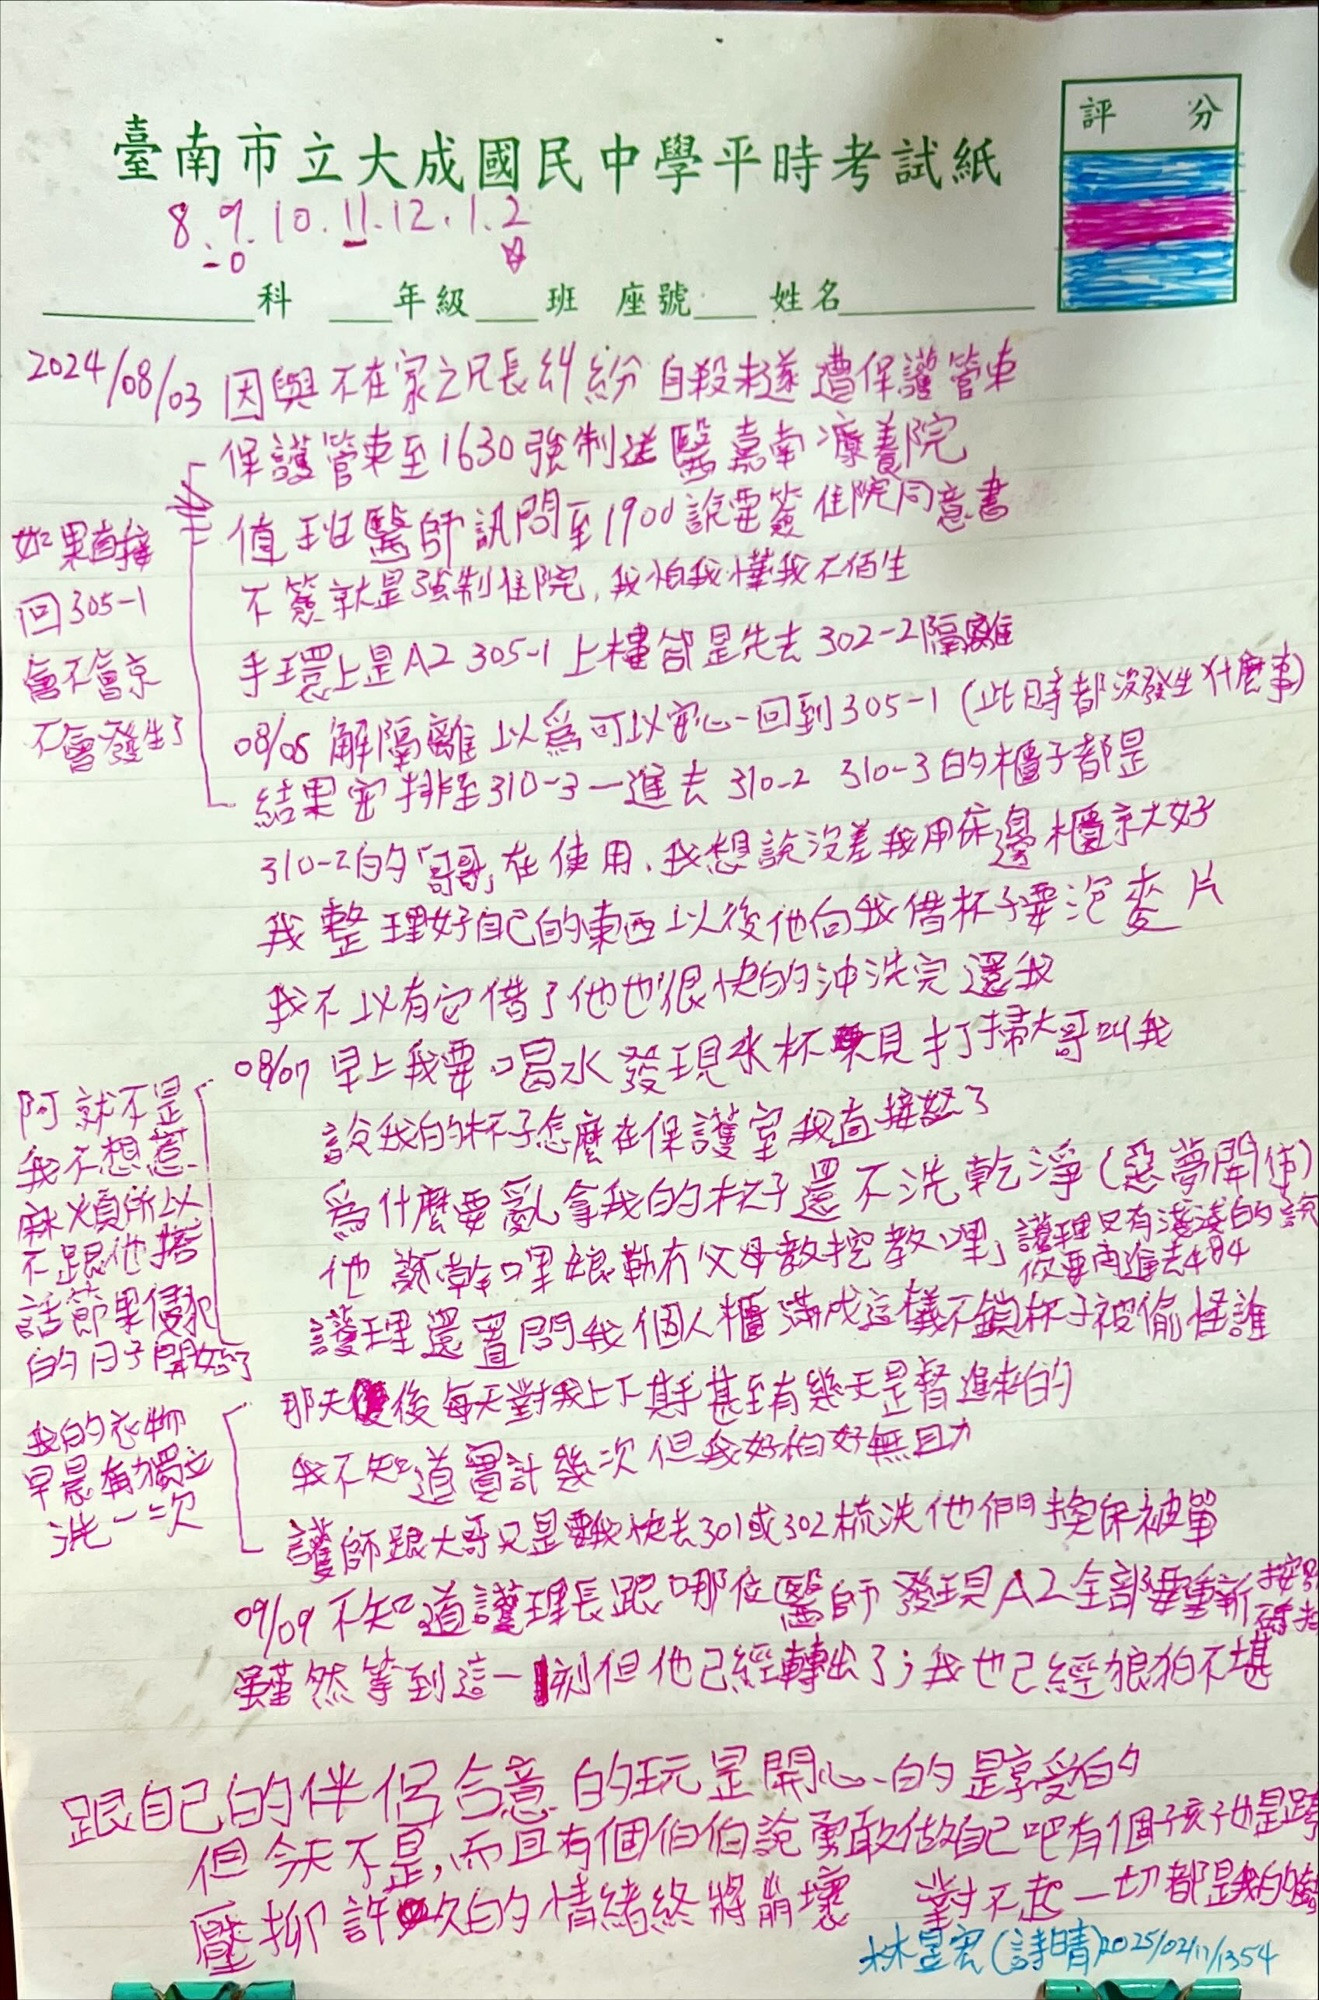 臺南市立大成國民中學平時考試紙
評 分
8.9.10.11.12.1.2
-0
科 年級 班 座號 姓名
2024/08/03 因與不在家之兄長糾紛 自殺未遂 遭保護管束
保護管束至1630強制送醫嘉南療養院
值班醫師訊問至1900說要簽住院同意書
不簽就是強制住院,我怕我
手環上是A2 305-1 上樓卻是先去302-2隔離
08/05 解隔離 以為可以安心回到305-1 (此時都沒發生什麼事)
結果安排至310-3一進去 310-2 310-3的櫃子都是
310-2的「哥哥」在使用.我想說沒差我用床邊櫃就好
我整理好自己的東西以後他向我借杯子要泡麥片
我不以有它借了他也很快的沖洗完還我
如果直接
回305-1
會不會
不會發生了
08/07 早上我要喝水發現水杯不見打掃大哥叫我
說我的杯子怎麼在保護室我直接怒了
為什麼要亂拿我的杯子還不洗乾淨(惡夢開始)
他說「幹哩娘勒冇父母教挖教哩」護理只有淺淺的說
你要再進去484
護理還置問我個人櫃滿成這樣不鎖杯子被偷怪誰
阿就不是
我不想惹
麻煩所以
不跟他搭
話節果侵犯
的日子開始了
那天後每天對我上下其手甚至有幾天是督進來的
我不知道實計幾次但我好怕好無助
護師跟大哥只是要我快去301或302梳洗他們換床被單
我的衣物
早晨有獨立
洗一二次
09/09 不知道護理長跟哪位醫師發現A2全部要重新
雖然等到這一刻但他已經轉出了;我也已經狼狽不堪
跟自己的伴侶合意的玩是開心的是享受的
但今天不是,而且有個伯伯說勇敢做自己吧有個孩子也是
壓抑許久的情緒終將崩壞 對不起一切都是我的錯
林昱宏(詩晴)2025/02/11/1354